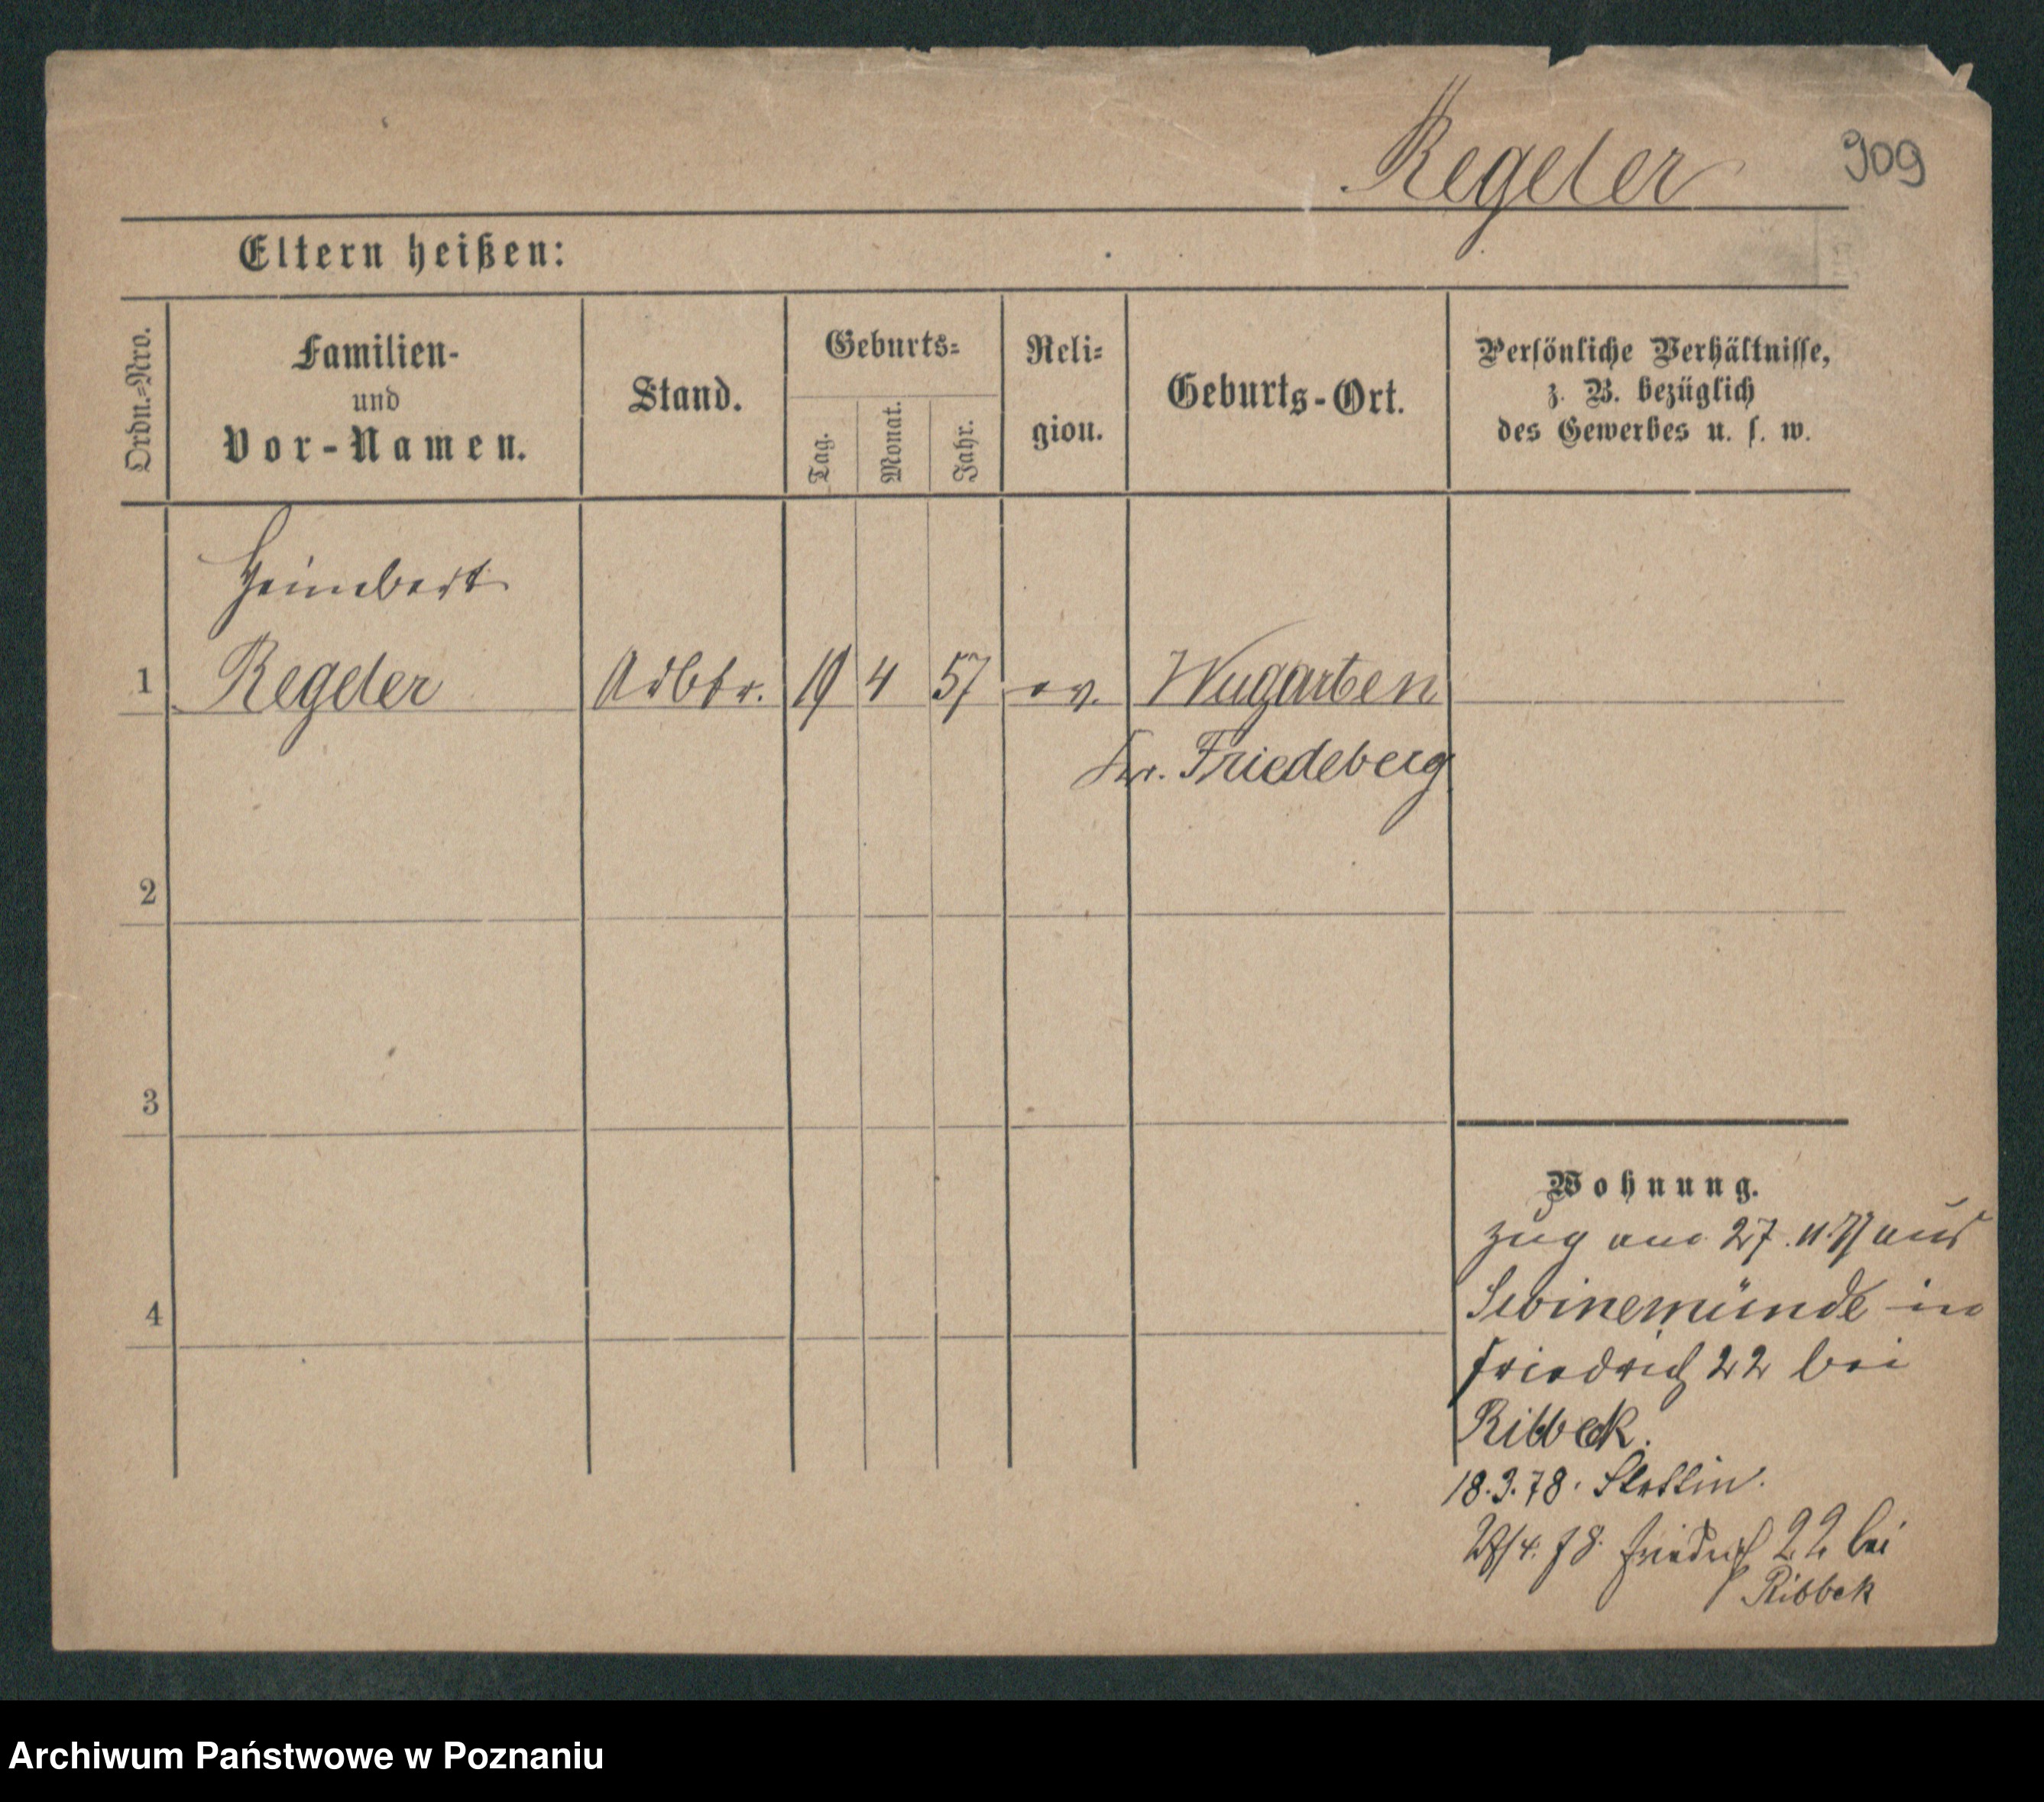 Regeler
909
Eltern heißen:
Ordn.=Nro.
Familien-
und
Vor-Namen.
Stand.
Geburts=
Tag.
Monat.
Jahr.
Reli=
gion.
Geburts-Ort.
Persönliche Verhältnisse,
z. B. bezüglich
des Gewerbes u. s. w.
Heimbert
1 Regeler Arbtr. 19 4 57 ev. Wugarten
Kr. Friedeberg
2
3
4
Wohnung.
zug am 27. 11. 77 aus
Swinemünde in
Friedrich 22 bei
Ribbeck.
18.3.78. Stettin.
4. 78. Friedrich 22 bei
Ribbek
Archiwum Państwowe w Poznaniu